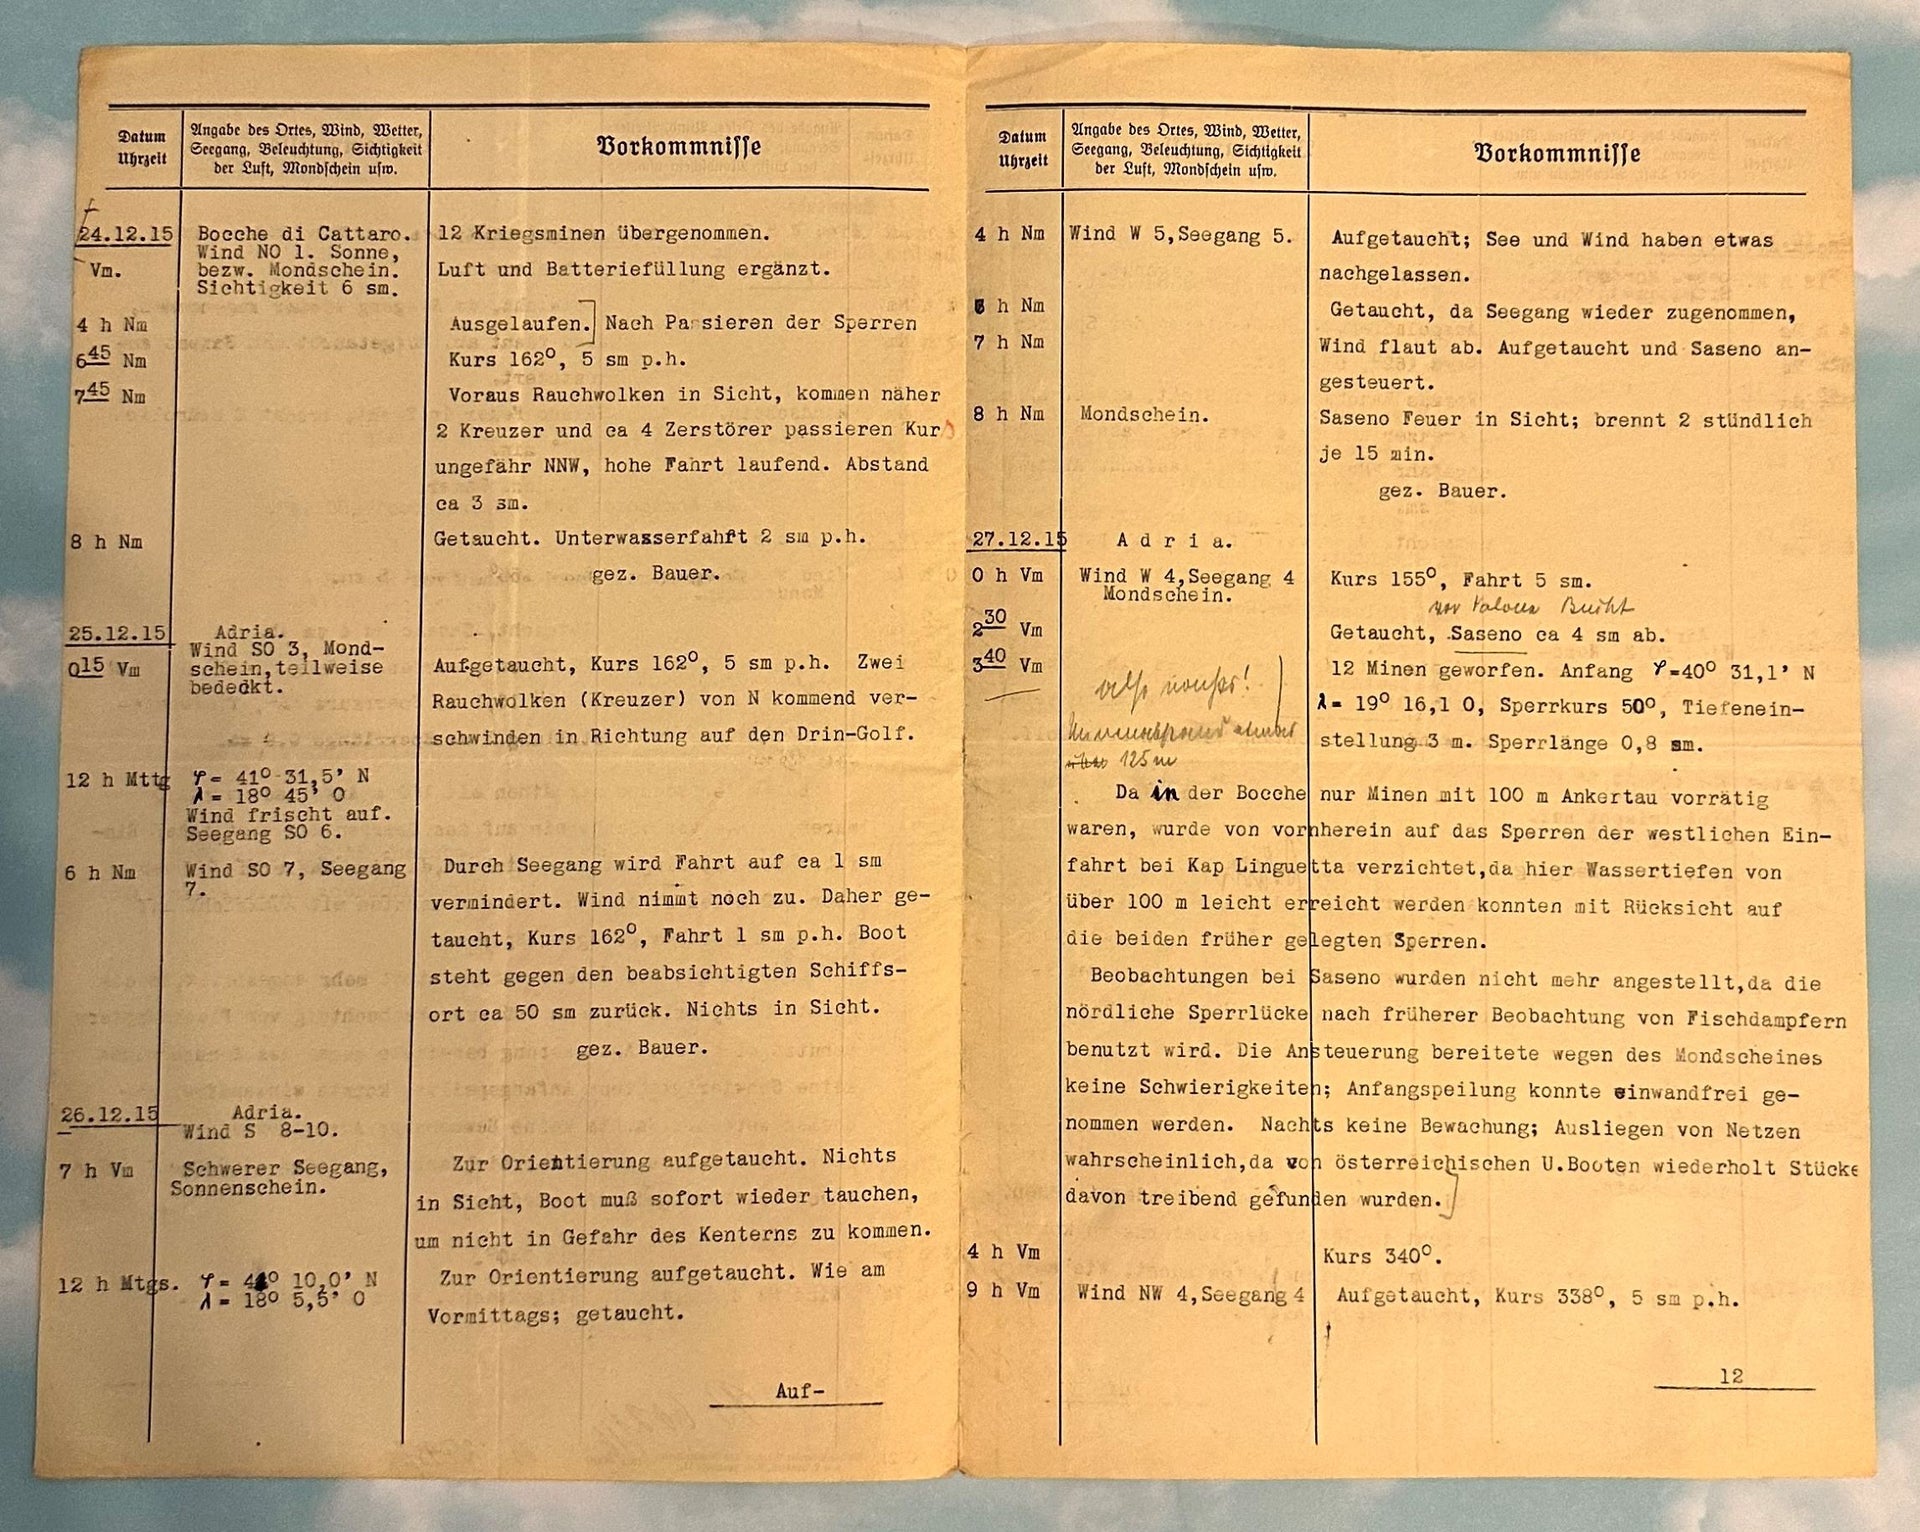 Datum
Uhrzeit
Angabe des Ortes, Wind, Wetter,
Seegang, Beleuchtung, Sichtigkeit
der Luft, Mondschein usw.
Vorkommnisse
24.12.15
Vm.
Bocche di Cattaro.
Wind NO 1. Sonne,
bezw. Mondschein.
Sichtigkeit 6 sm.
12 Kriegsminen übergenommen.
Luft und Batteriefüllung ergänzt.
4 h Nm
Ausgelaufen.] Nach Passieren der Sperren
6 45 Nm
Kurs 162°, 5 sm p.h.
7 45 Nm
Voraus Rauchwolken in Sicht, kommen näher
2 Kreuzer und ca 4 Zerstörer passieren Kurs
ungefähr NNW, hohe Fahrt laufend. Abstand
ca 3 sm.
8 h Nm
Getaucht. Unterwasserfahrt 2 sm p.h.
gez. Bauer.
25.12.15
0 15 Vm
Adria.
Wind SO 3, Mond-
schein, teilweise
bedeckt.
Aufgetaucht, Kurs 162°, 5 sm p.h. Zwei
Rauchwolken (Kreuzer) von N kommend ver-
schwinden in Richtung auf den Drin-Golf.
12 h Mttg
φ= 41° 31,5' N
λ= 18° 45' O
Wind frischt auf.
Seegang SO 6.
6 h Nm
Wind SO 7, Seegang
7.
Durch Seegang wird Fahrt auf ca 1 sm
vermindert. Wind nimmt noch zu. Daher ge-
taucht, Kurs 162°, Fahrt 1 sm p.h. Boot
steht gegen den beabsichtigten Schiffs-
ort ca 50 sm zurück. Nichts in Sicht.
gez. Bauer.
26.12.15
Adria.
Wind S 8-10.
7 h Vm
Schwerer Seegang,
Sonnenschein.
Zur Orientierung aufgetaucht. Nichts
in Sicht, Boot muß sofort wieder tauchen,
um nicht in Gefahr des Kenterns zu kommen.
12 h Mtgs.
φ= 41° 10,0' N
λ= 18° 5,5' O
Zur Orientierung aufgetaucht. Wie am
Vormittags; getaucht.
Auf-
Datum
Uhrzeit
Angabe des Ortes, Wind, Wetter,
Seegang, Beleuchtung, Sichtigkeit
der Luft, Mondschein usw.
Vorkommnisse
4 h Nm
Wind W 5, Seegang 5.
Aufgetaucht; See und Wind haben etwas
nachgelassen.
h Nm
Getaucht, da Seegang wieder zugenommen,
7 h Nm
Wind flaut ab. Aufgetaucht und Saseno an-
gesteuert.
8 h Nm
Mondschein.
Saseno Feuer in Sicht; brennt 2 stündlich
je 15 min.
gez. Bauer.
27.12.15
Adria.
0 h Vm
Wind W 4, Seegang 4
Mondschein.
Kurs 155°, Fahrt 5 sm.
vor Valona Bucht
2 30 Vm
Getaucht, Saseno ca 4 sm ab.
3 40 Vm
12 Minen geworfen. Anfang φ=40° 31,1' N
λ= 19° 16,1 O, Sperrkurs 50°, Tiefenein-
stellung 3 m. Sperrlänge 0,8 sm.
125 m
Da in der Bocche nur Minen mit 100 m Ankertau vorrätig
waren, wurde von vornherein auf das Sperren der westlichen Ein-
fahrt bei Kap Linguetta verzichtet, da hier Wassertiefen von
über 100 m leicht erreicht werden konnten mit Rücksicht auf
die beiden früher gelegten Sperren.
Beobachtungen bei Saseno wurden nicht mehr angestellt, da die
nördliche Sperrlücke nach früherer Beobachtung von Fischdampfern
benutzt wird. Die Ansteuerung bereitete wegen des Mondscheines
keine Schwierigkeiten; Anfangspeilung konnte einwandfrei ge-
nommen werden. Nachts keine Bewachung; Ausliegen von Netzen
wahrscheinlich, da von österreichischen U.Booten wiederholt Stücke
davon treibend gefunden wurden.]
4 h Vm
Kurs 340°.
9 h Vm
Wind NW 4, Seegang 4
Aufgetaucht, Kurs 338°, 5 sm p.h.
12